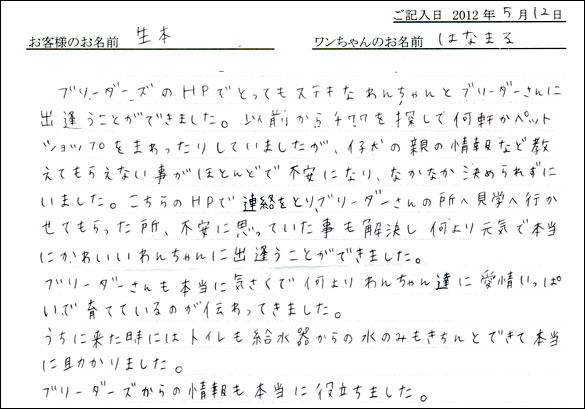 ご記入日 2012年5月12日
お客様のお名前 生本 ワンちゃんのお名前 はなまる
ブリーダーズのHPでとってもステキなわんちゃんとブリーダーさんに
出逢うことができました。以前からチワワを探して何軒かペット
ショップをまわったりしていましたが、仔犬の親の情報など教
えてもらえない事がほとんどで不安になり、なかなか決められずに
いました。こちらのHPで連絡をとり、ブリーダーさんの所へ見学へ行か
せてもらった所、不安に思っていた事も解決し何より元気で本当
にかわいいわんちゃんに出逢うことができました。
ブリーダーさんも本当に気さくで何よりわんちゃん達に愛情いっぱ
いで育てているのが伝わってきました。
うちに来た時にはトイレも給水器からの水のみもきちんとできて本当
に助かりました。
ブリーダーズからの情報も本当に役立ちました。